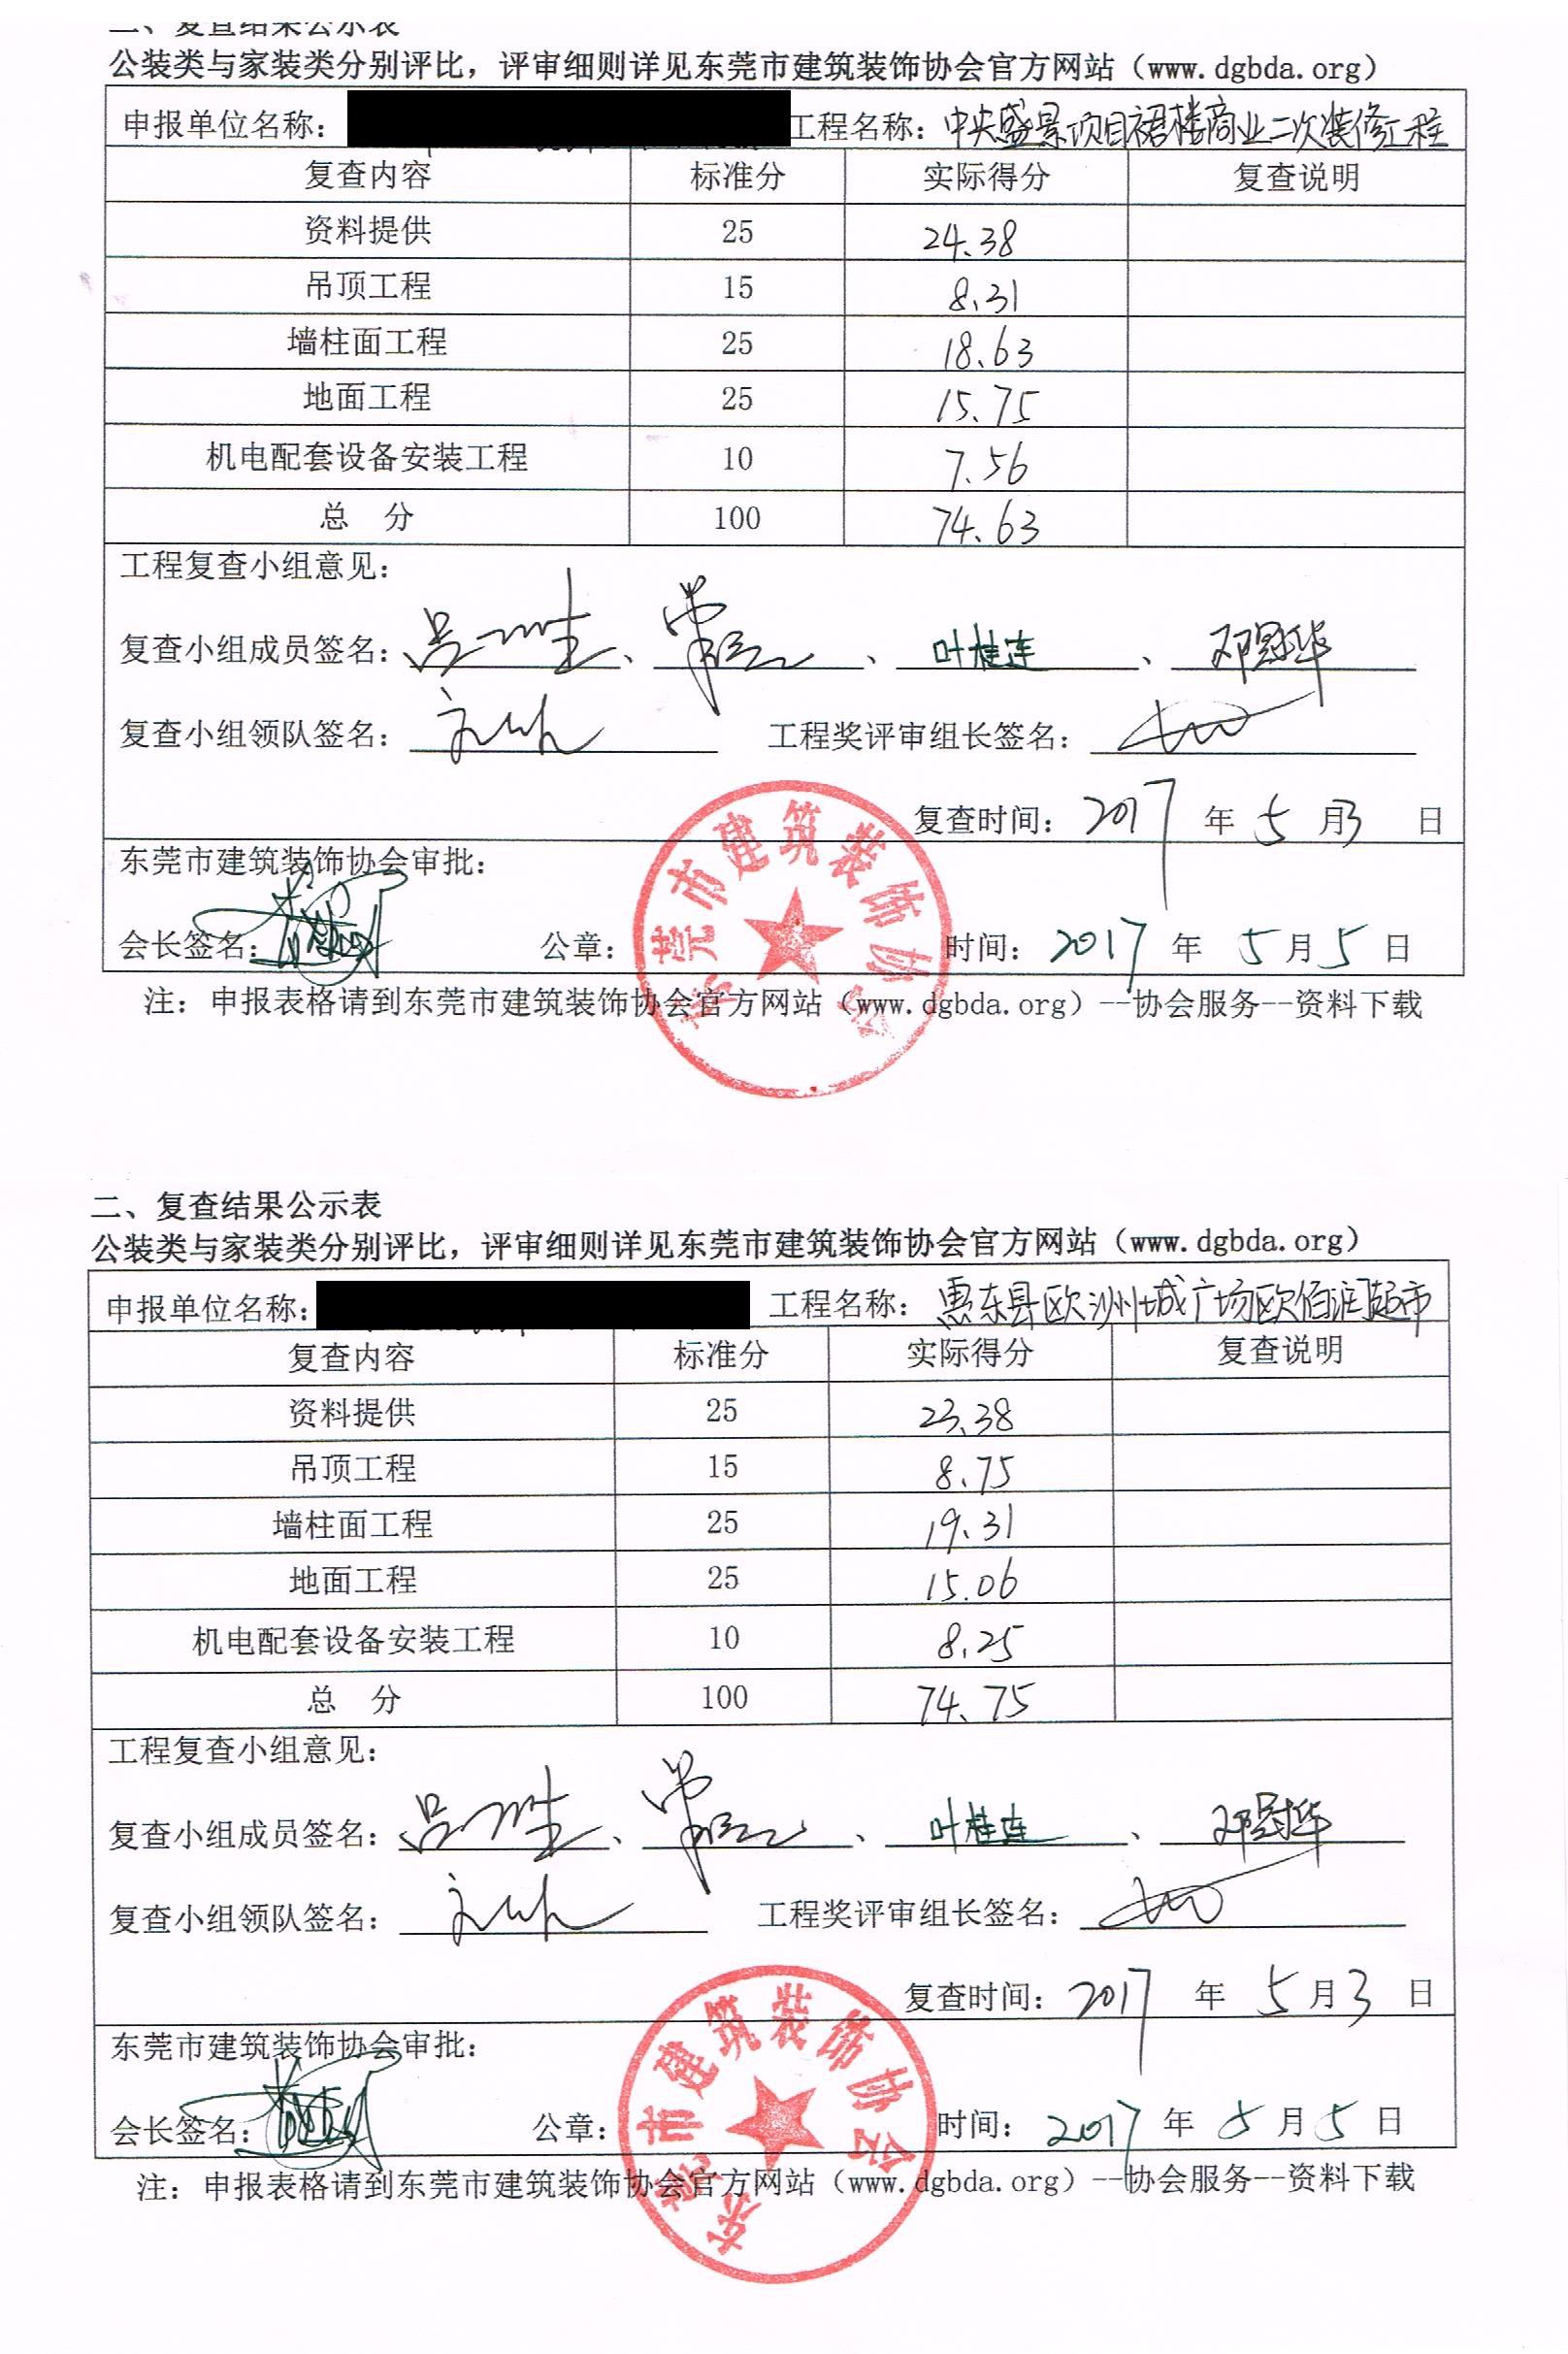 二、复查结果公示表
公装类与家装类分别评比，评审细则详见东莞市建筑装饰协会官方网站（www.dgbda.org）
申报单位名称： 工程名称：中央盛景项目裙楼商业二次装修工程
复查内容 标准分 实际得分 复查说明
资料提供 25 24.38
吊顶工程 15 8.31
墙柱面工程 25 18.63
地面工程 25 15.75
机电配套设备安装工程 10 7.56
总 分 100 74.63
工程复查小组意见：
复查小组成员签名： 、 、 叶桂连 、
复查小组领队签名： 工程奖评审组长签名：
复查时间：2017 年 5 月 3 日
东莞市建筑装饰协会审批：
会长签名： 公章： 时间：2017 年 5 月 5 日
东莞市建筑装饰协会
注：申报表格请到东莞市建筑装饰协会官方网站（www.dgbda.org）--协会服务--资料下载
二、复查结果公示表
公装类与家装类分别评比，评审细则详见东莞市建筑装饰协会官方网站（www.dgbda.org）
申报单位名称： 工程名称：惠东县欧洲城广场欧佰润超市
复查内容 标准分 实际得分 复查说明
资料提供 25 23.38
吊顶工程 15 8.75
墙柱面工程 25 19.31
地面工程 25 15.06
机电配套设备安装工程 10 8.25
总 分 100 74.75
工程复查小组意见：
复查小组成员签名： 、 、 叶桂连 、
复查小组领队签名： 工程奖评审组长签名：
复查时间：2017 年 5 月 3 日
东莞市建筑装饰协会审批：
会长签名： 公章： 时间：2017 年 5 月 5 日
东莞市建筑装饰协会
注：申报表格请到东莞市建筑装饰协会官方网站（www.dgbda.org）--协会服务--资料下载